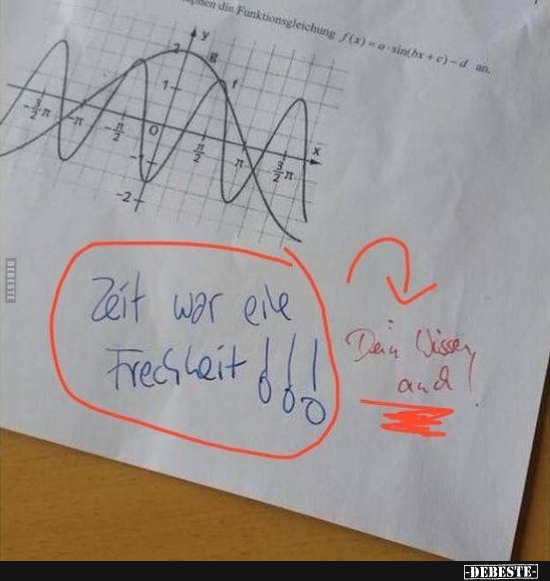 die Funktionsgleichung f(x) = a·sin(bx + c) – d an.
y
2
g
1
f
-3/2 π
-π
-π/2
0
π/2
π
3/2 π
x
-1
-2
Zeit war eine
Frechheit!!!
Dein Wissen
auch!
DEBESTE
-DEBESTE-